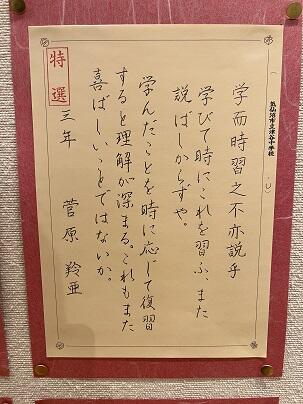 気仙沼市立津谷中学校
学而時習之不亦説乎
学びて時にこれを習ふ、また
説ばしからずや。
学んだことを時に応じて復習
すると理解が深まる。これもまた
喜ばしいことではないか。
特選
三年 菅原 羚亜